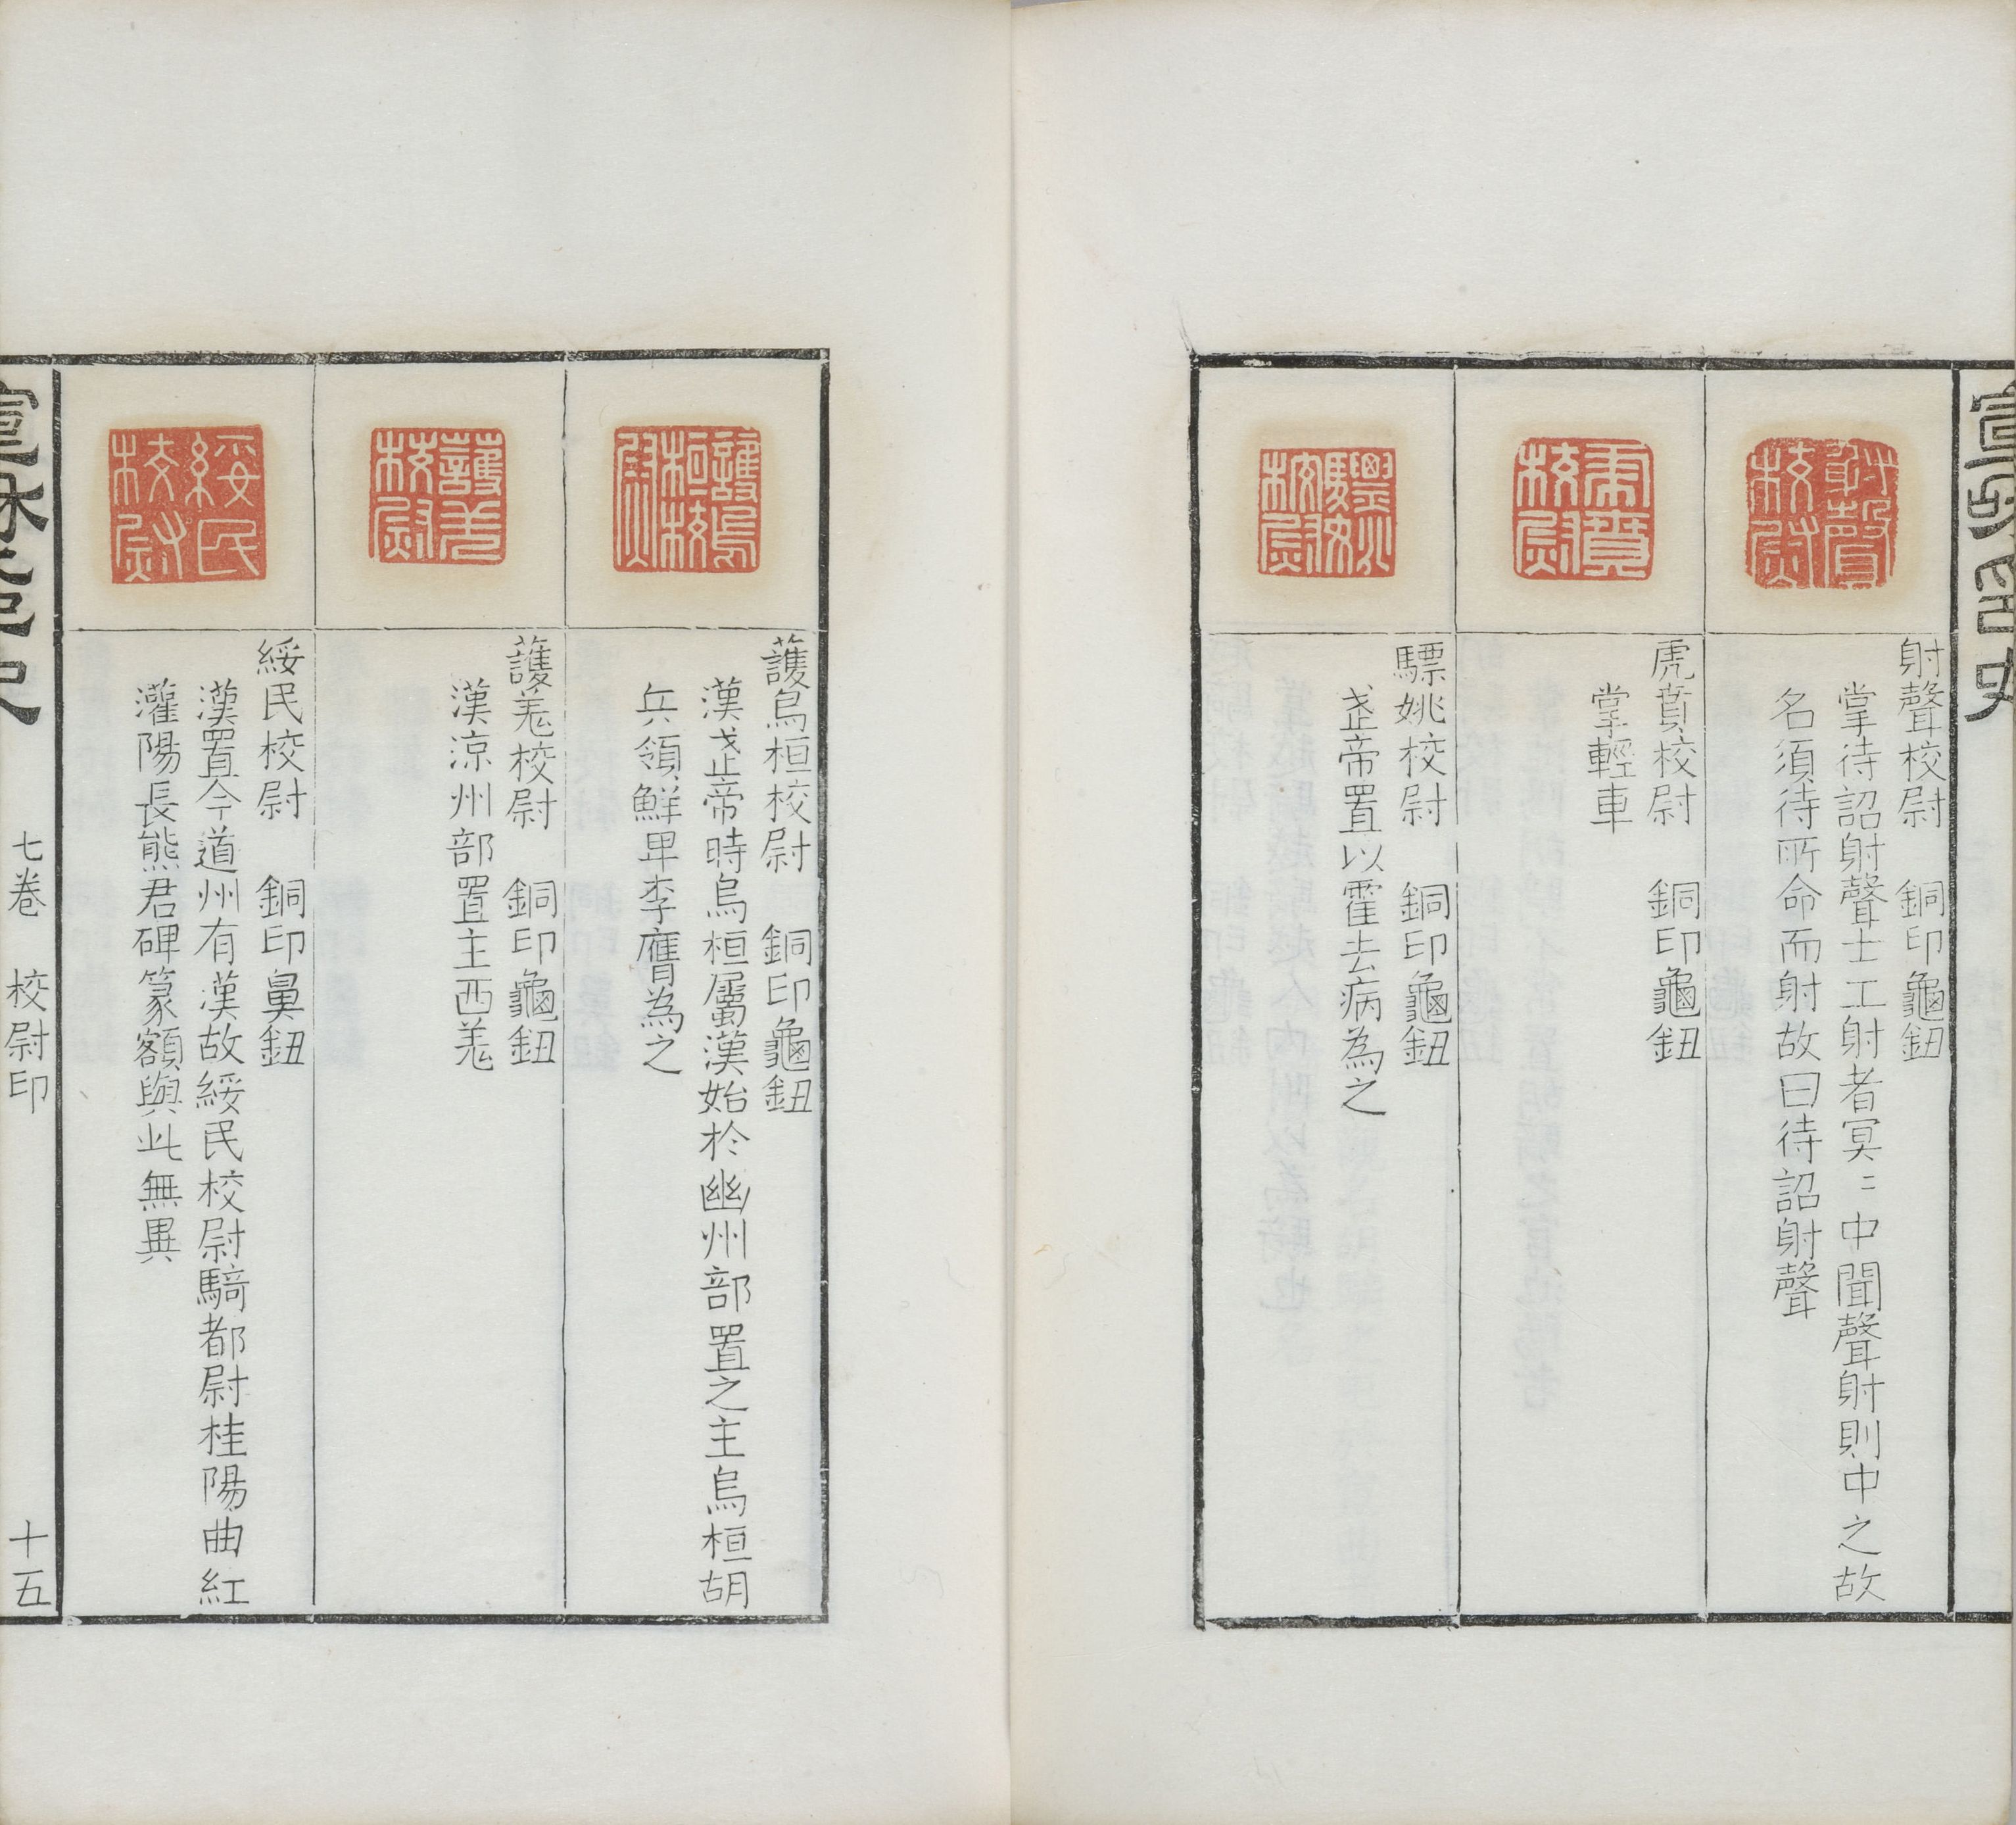 宣和印史
射聲校尉
射聲校尉 銅印龜鈕
掌待詔射聲士工射者冥〻中聞聲射則中之故
名須待所命而射故曰待詔射聲
虎賁校尉
虎賁校尉 銅印龜鈕
掌輕車
驃姚校尉
驃姚校尉 銅印龜鈕
武帝置以霍去病為之
護烏桓校尉
護烏桓校尉 銅印龜鈕
漢武帝時烏桓屬漢始於幽州部置之主烏桓胡
兵領鮮卑李膺為之
護羌校尉
護羌校尉 銅印龜鈕
漢涼州部置主西羌
綏民校尉
綏民校尉 銅印鼻鈕
漢置今道州有漢故綏民校尉騎都尉桂陽曲紅
灌陽長熊君碑篆額與此無異
宣和印史
七卷 校尉印 十五